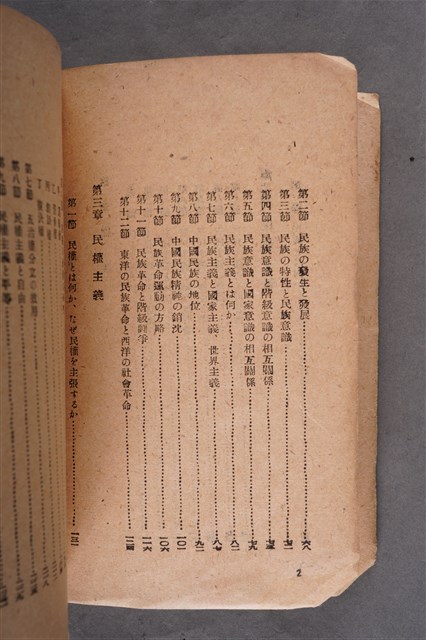 第二節　民族の發生と發展……六八
第三節　民族の特性と民族意識……七一
第四節　民族意識と階級意識の相互關係……七五
第五節　民族意識と國家意識の相互關係……七九
第六節　民族主義とは何か……八二
第七節　民族主義と國家主義、世界主義……八七
第八節　中國民族の地位……九二
第九節　中國民族精神の銷沈……一〇一
第十節　民族革命運動の方略……一〇六
第十一節　民族革命と階級鬪爭……一一六
第十二節　東洋の民族革命と西洋の社會革命……一二四
第三章　民權主義
第一節　民權とは何か、なぜ民權を主張するか……一三一
2
第七節
第八節　民權主義と自由
第九節　民權主義と平等